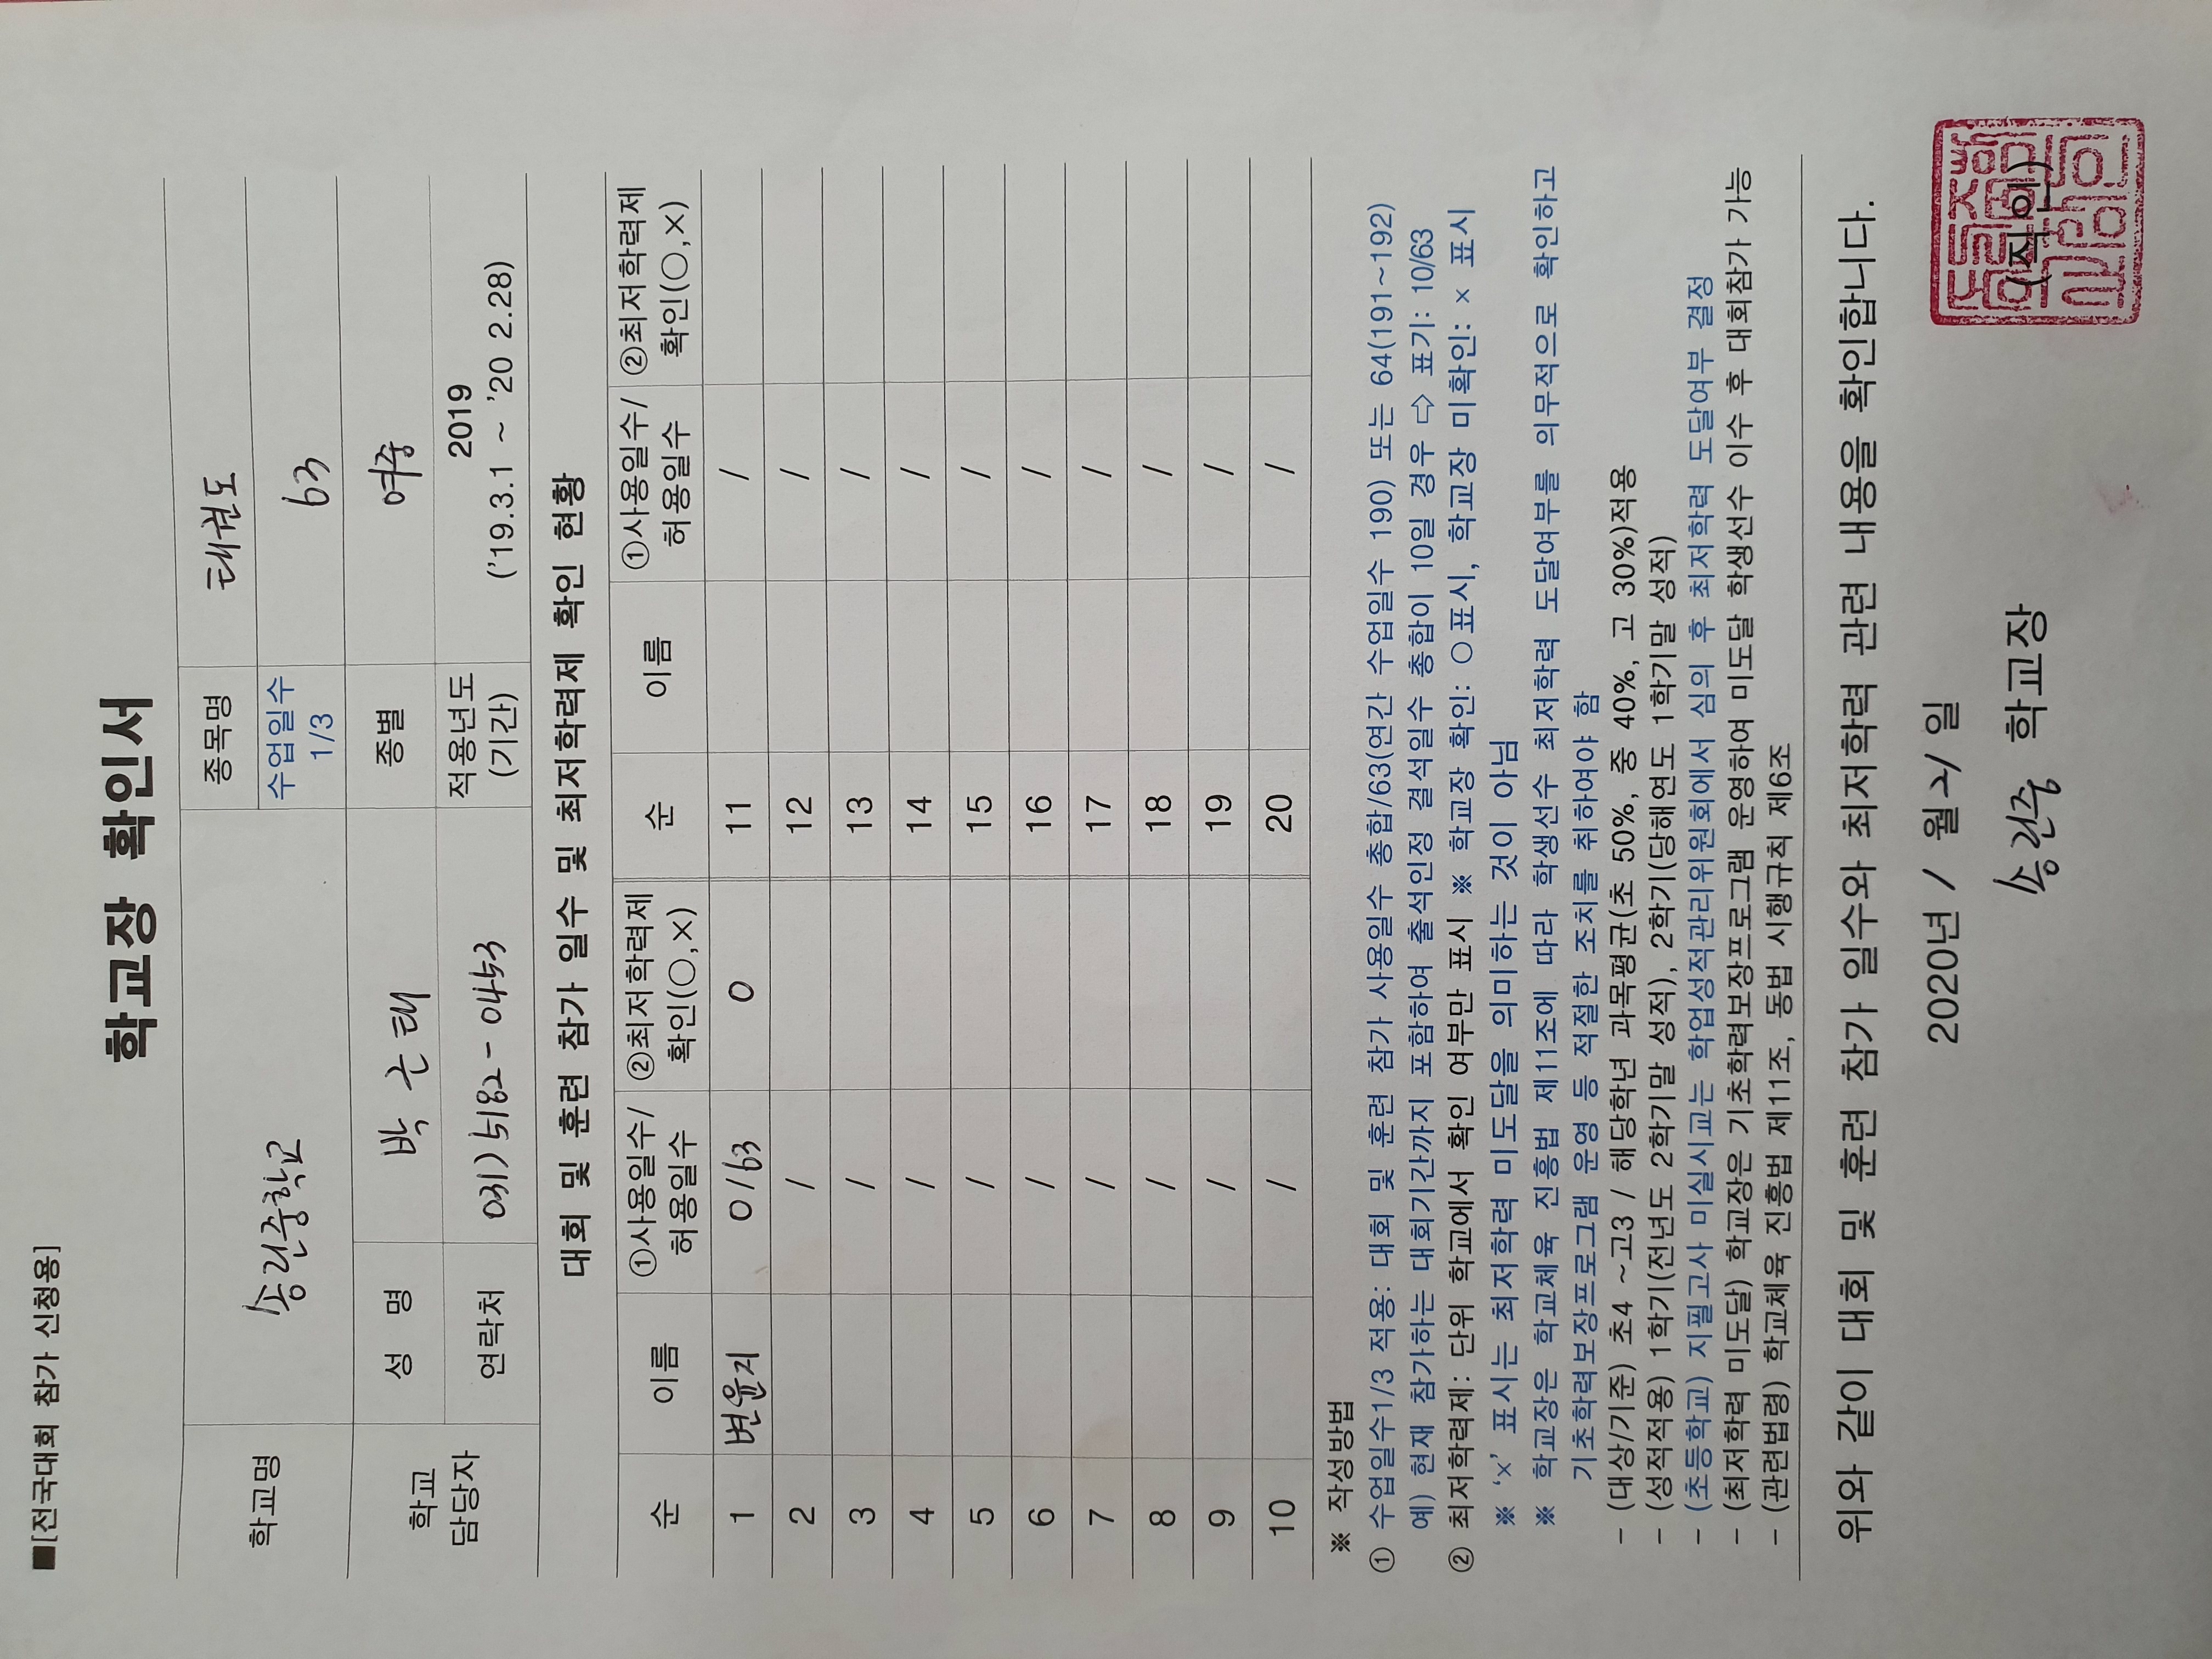 ■[전국대회 참가 신청용]
학교장 확인서
학교명 송전중학교 종목명 태권도
수업일수 1/3 63
학교 담당자 성 명 박근태 종별 여중
연락처 031) 5182-0453 적용년도 (기간) 2019 ('19.3.1 ~ '20 2.28)
대회 및 훈련 참가 일수 및 최저학력제 확인 현황
순 이름 ①사용일수/허용일수 ②최저학력제 확인(○,×) 순 이름 ①사용일수/허용일수 ②최저학력제 확인(○,×)
1 변윤지 0/63 0 11 /
2 / 12 /
3 / 13 /
4 / 14 /
5 / 15 /
6 / 16 /
7 / 17 /
8 / 18 /
9 / 19 /
10 / 20 /
※ 작성방법
① 수업일수1/3 적용: 대회 및 훈련 참가 사용일수 총합/63(연간 수업일수 190) 또는 64(191~192)
예) 현재 참가하는 대회기간까지 포함하여 출석인정 결석일수 총합이 10일 경우 ⇨ 표기: 10/63
② 최저학력제: 단위 학교에서 확인 여부만 표시 ※ 학교장 확인: ○표시, 학교장 미확인: × 표시
※ '×' 표시는 최저학력 미도달을 의미하는 것이 아님
※ 학교장은 학교체육 진흥법 제11조에 따라 학생선수 최저학력 도달여부를 의무적으로 확인하고
기초학력보장프로그램 운영 등 적절한 조치를 취하여야 함
- (대상/기준) 초4 ~고3 / 해당학년 과목평균(초 50%, 중 40%, 고 30%)적용
- (성적적용) 1학기(전년도 2학기말 성적), 2학기(당해연도 1학기말 성적)
- (초등학교) 지필고사 미실시교는 학업성적관리위원회에서 심의 후 최저학력 도달여부 결정
- (최저학력 미도달) 학교장은 기초학력보장프로그램 운영하여 미도달 학생선수 이수 후 대회참가 가능
- (관련법령) 학교체육 진흥법 제11조, 동법 시행규칙 제6조
위와 같이 대회 및 훈련 참가 일수와 최저학력 관련 내용을 확인합니다.
2020년 1 월 21 일
송전중 학교장 (직인)